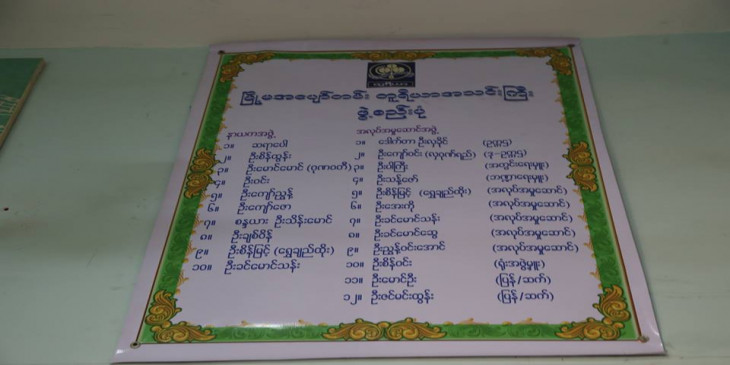 မြို့မအပျော်တမ်း တူရိယာအသင်းကြီး
ဖွဲ့စည်းပုံ
နာယကအဖွဲ့
၁။ ဆရာပေါ
၂။ ဦးစိန်ထွန်း
၃။ ဦးမောင်မောင် (ဂုဏဝတီ)
၄။ ဦးဝင်း
၅။ ဦးကျော်ညွန့်
၆။ ဦးကျော်ဇော
၇။ စန္ဒယား ဦးသိန်းမောင်
၈။ ဦးချစ်စိန်
၉။ ဦးစိန်မြင့် (ရွှေချည်ထိုး)
၁၀။ ဦးခင်မောင်သန်း
အလုပ်အမှုဆောင်အဖွဲ့
၁။ ဒေါက်တာ ဦးလှခိုင် (ဥက္ကဋ္ဌ)
၂။ ဦးကျော်ဝင်း (လှဂုဏ်ရည်) (ဒု-ဥက္ကဋ္ဌ)
၃။ ဦးဝါကြီး (အတွင်းရေးမှူး)
၄။ ဦးသန့်ဇော် (ဘဏ္ဍာရေးမှူး)
၅။ ဦးစိန်မြင့် (ရွှေချည်ထိုး) (အလုပ်အမှုဆောင်)
၆။ ဦးအေးကို (အလုပ်အမှုဆောင်)
၇။ ဦးခင်မောင်သန်း (အလုပ်အမှုဆောင်)
၈။ ဦးခင်မောင်ဆွေ (အလုပ်အမှုဆောင်)
၉။ ဦးညွန့်ဝင်းအောင် (အလုပ်အမှုဆောင်)
၁၀။ ဦးစိန်ဝင်း (ရုံးအဖွဲ့မှူး)
၁၁။ ဦးမောင်ဦး (ပြန်/ဆက်)
၁၂။ ဦးဇင်မင်းထွန်း (ပြန်/ဆက်)